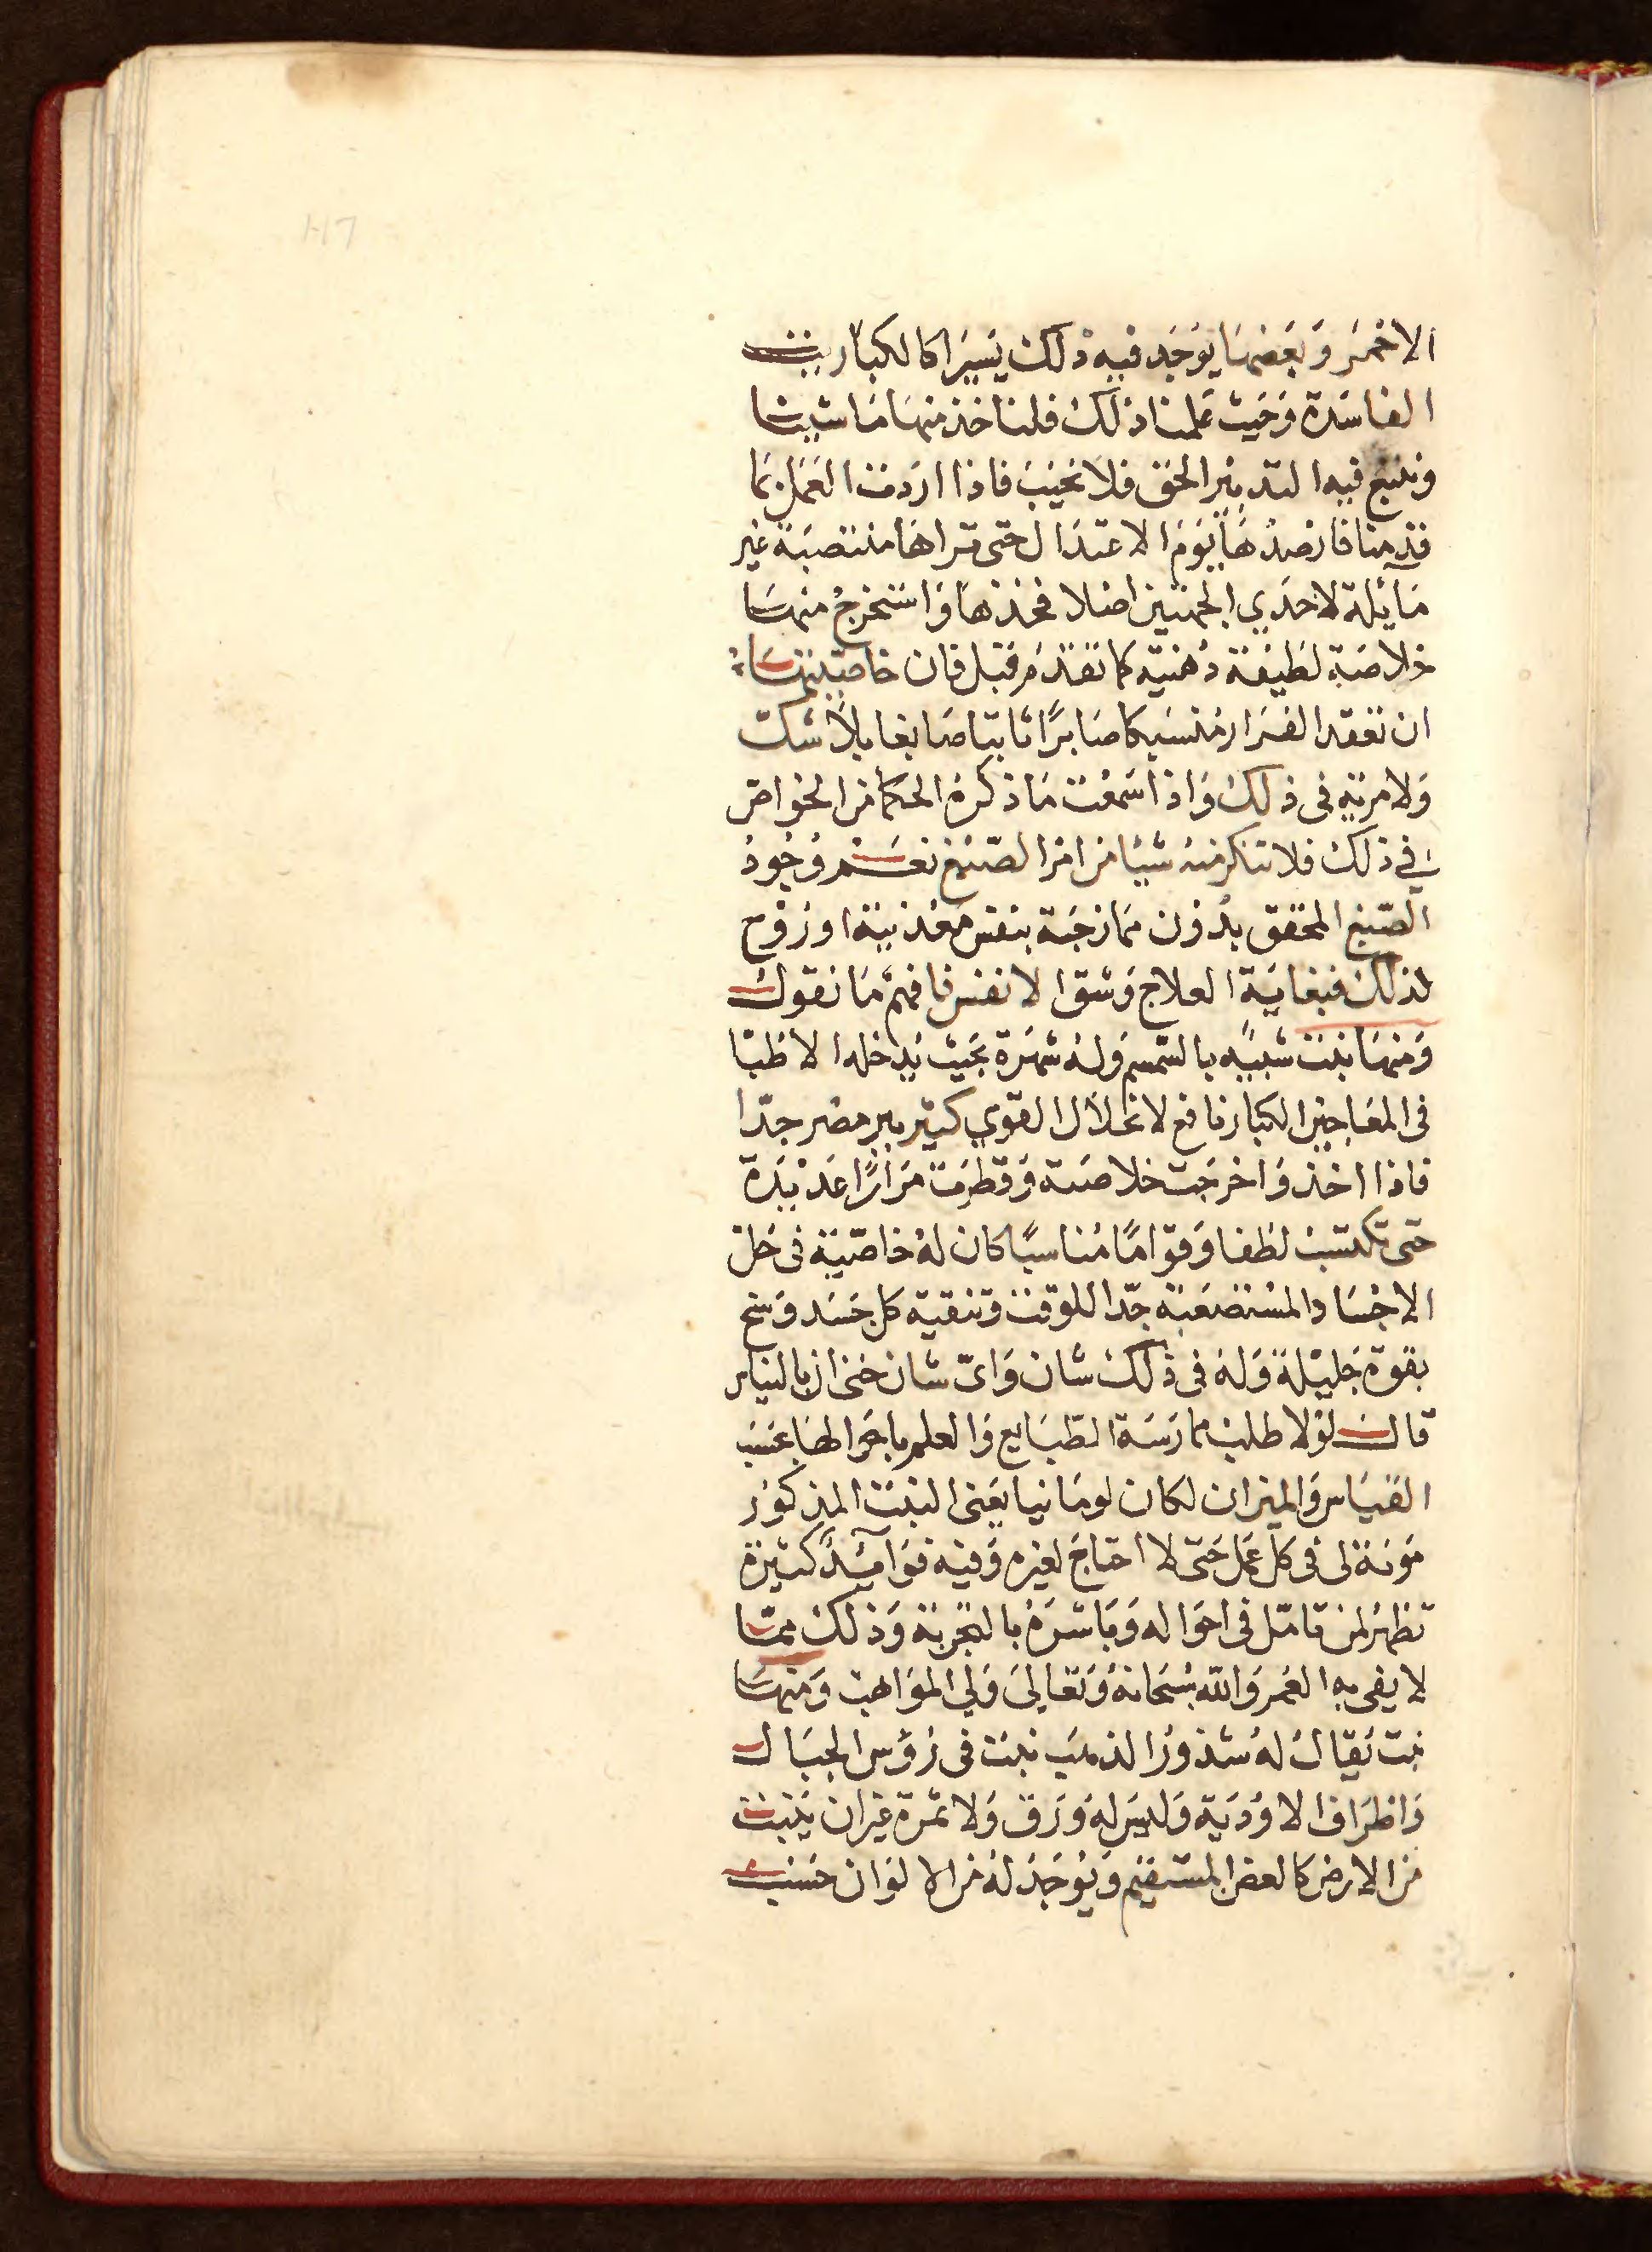 الاحمَر وَبَعضهَا يوُجَد فيه ذلك يَسيَرا كالكبَاريت
الفاسَدة وَحَيث عَلمنا ذلك فلناخذ منهَا مَا شيئنا
ونتبع فيه التدبير الحَق فلا نخيبَ فاذا اردت العَمل بمَا
قدمنا فارصُدْهَا يَومَ الاعتدَال حَتى تراهَا منتصبَة غير
مَآئلة لاحدَي الجهتين اصْلا فخذهَا وَاستخرجْ منهسَا
خلاصَة لطيفة دُهنية كما تقدمَ قبل فان خاصيتهسَا
ان تعقد الفَرار مُنسَبكا صَابرًا ثابتا صَابغا بلاَ شك
وَلا مرية في ذلك وَاذا سَمعْت مَا ذكرهُ الحكمَا من الخوَاصّ
في ذلك فلا تنكر منهُ شيئا من امر الصّبْغ نعَسم وُجُودُ
الصّبغ المحَقق بدُون مَمازجَة بنفس مَعْدنيَة اورُوح
لذلك فبغايَة العلاج وَشق الانفس فافهمْ مَا نقول
وَمنهَا نبت شبيْه بالسّمسم وَلهُ شهرَة بحَيث يُدخله الاطبّا
في المعَاجين الكبار نافع لانحلاَل القوي كثير ببر مصْر جدّا
فاذا اخذ وَاخرجَت خلاصَته وَقطرَت مرَارًا عَديْدَة
حَتى تكتسَبَ لطفا وَقوَامًا مُناسبًا كان لهُ خاصّيَة في حَل
الاجْسَاد المسْتصْعَبَة جدّا للوقت وتنقية كل جَسَد وَسخ
بقوة جَليْلة وَلهُ في ذلك شان وَاىّ شان حَتى ان باليناس
قال لوْلا طلبت ممارَسَة الطبَايع وَالعلم باحوَالهَا بحَسَبَ
القيَاس وَالميزان لكان لومَانيا يَعنى النبت المذكور
مَونة لى في كل عَمَل حَتى لا احتاجَ لغيره وَفيْه فوَآئد كثيْرة
تظهَر لمن تامّل في احوَاله وَبَاشَرَهُ بالتجْربَة وَذلك ممّا
لا يفى به العُمر وَاللّه سُبْحانهُ وَتعَاليَ وَليُّ المَوَاهب وَمنهسَا
نبت يُقال لهُ شذورُ الذهَب ينبت في رُؤس الجبَال
وَاطرَاف الاوْدَيَة وَليسَ لهُ وَرَق وَلا ثمرَة غيرَ ان يَنبت
منَ الارض كالعصَا المستقيم وَيُوْجَدُ لهُ منَ الالوَان حَسْب